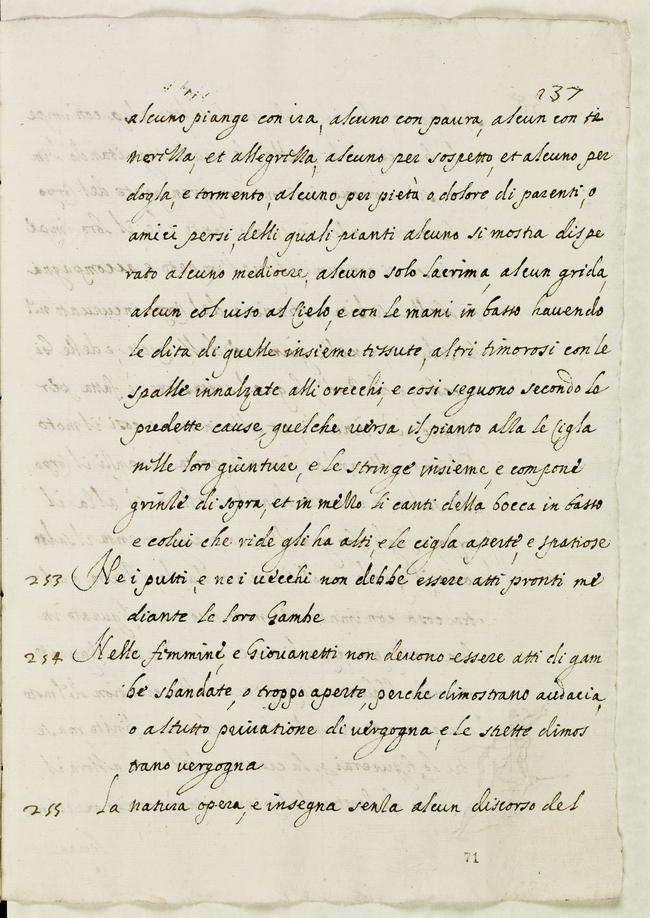 237
alcuno piange con ira, alcuno con paura, alcun con te
nerezza, et allegrezza, alcuno per sospetto, et alcuno per
dogla, e tormento, alcuno per pietà o dolore di parenti, o
amici persi, delli quali pianti alcuno si mostra dispe
rato alcuno mediocre, alcuno solo lacrima, alcun grida,
alcun col viso al Cielo, e con le mani in basso havendo
le dita di quelle insieme tissute, altri timorosi con le
spalle innalzate alli orecchi, e cosi seguono secondo le
predette cause, quel che versa il pianto alza le Cigla
nelle loro giunture, e le stringe insieme, e compone
grinze di sopra, et in mezzo li canti della bocca in basso
e colui che ride gli ha alti, e le cigla aperte, e spatiose
253 Ne i putti, e ne i vecchi non debbe essere atti pronti me
diante le loro Gambe
254 Nelle femmine, e Giovanetti non devono essere atti di gam
be sbandate, o troppo aperte, perche dimostrano audacia,
o al tutto privatione di vergogna, e le strette dimos
trano vergogna
255 La natura opera, e insegna senza alcun discorso del
71